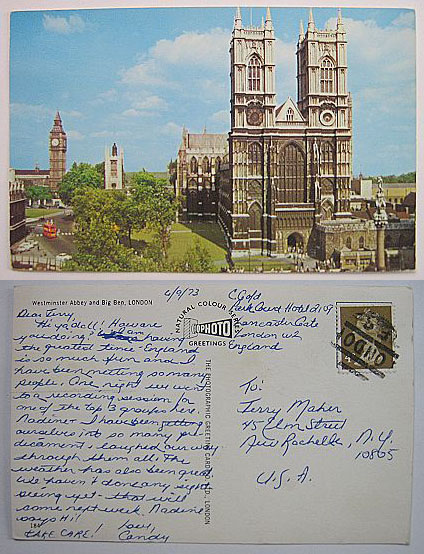 Westminster Abbey and Big Ben, LONDON
6/9/73
C Gold
Park Court Hotel
Lancaster Gate
London W2
England
NATURAL COLOUR
PHOTO
GREETINGS
THE PHOTOGRAPHIC GREETING CARD CO. LTD., LONDON
Dear Terry,
Hi ya doll! How are
you doing? I am having
the greatest time - England
is so much fun and I
have been meeting so many
people. One night we went
to a recording session for
one of the top 3 groups here.
Nadine + I have been getting
ourselves into so many pre-
dicaments + laughed our way
through them all. The
weather has also been great.
We haven't done any sight
seeing yet - that will
come next week. Nadine
says Hi!
Love,
TAKE CARE! Candy
To:
Terry Maher
45 Elm Street
New Rochelle, N.Y.
10865
U.S.A.